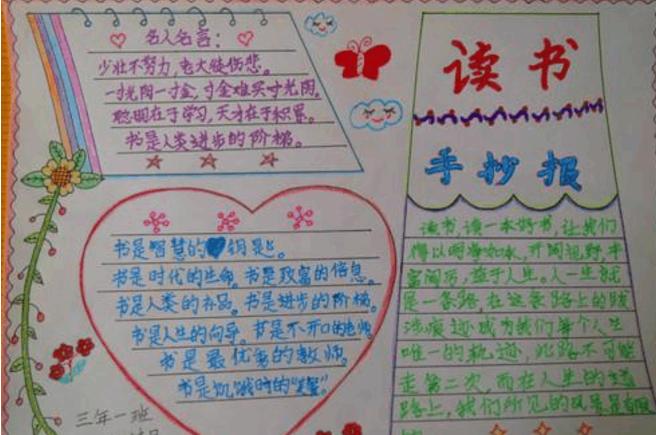 名人名言:
少壮不努力,老大徒伤悲。
一寸光阴一寸金,寸金难买寸光阴。
聪明在于学习,天才在于积累。
书是人类进步的阶梯。
读书
手抄报
书是智慧的钥匙。
书是时代的生命。书是致富的信息。
书是人类的补品。书是进步的阶梯。
书是人生的向导。书是不开口的老师。
书是最优秀的教师。
书是饥饿时的
三年一班
读书,读一本好书,让我们
得以明净如水,开阔视野,丰
富阅历,益于人生。人一生就
是一条路,在这条路上的跋
涉痕迹成为我们每个人生
唯一的轨迹,此路不可能
走第二次,而在人生的道
路上,我们所见的风景是有限